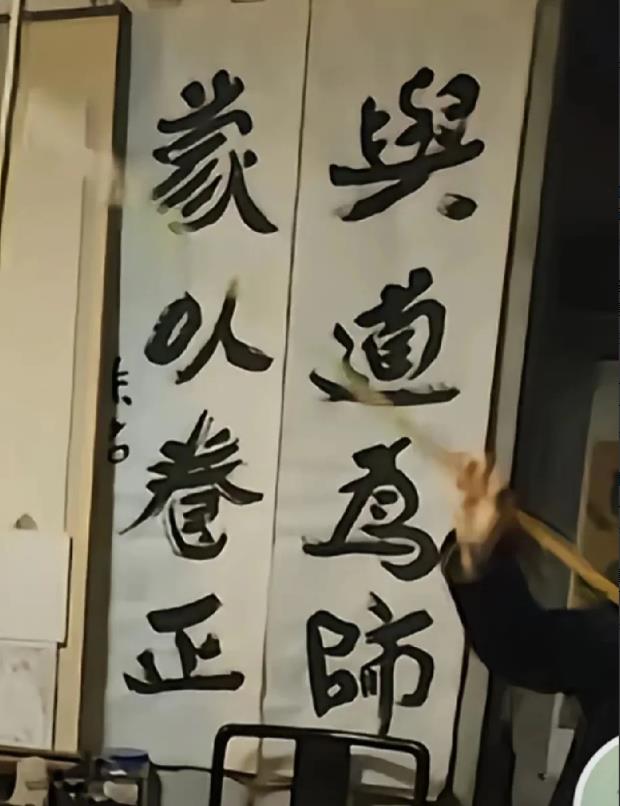 與道為師
蒙以養正